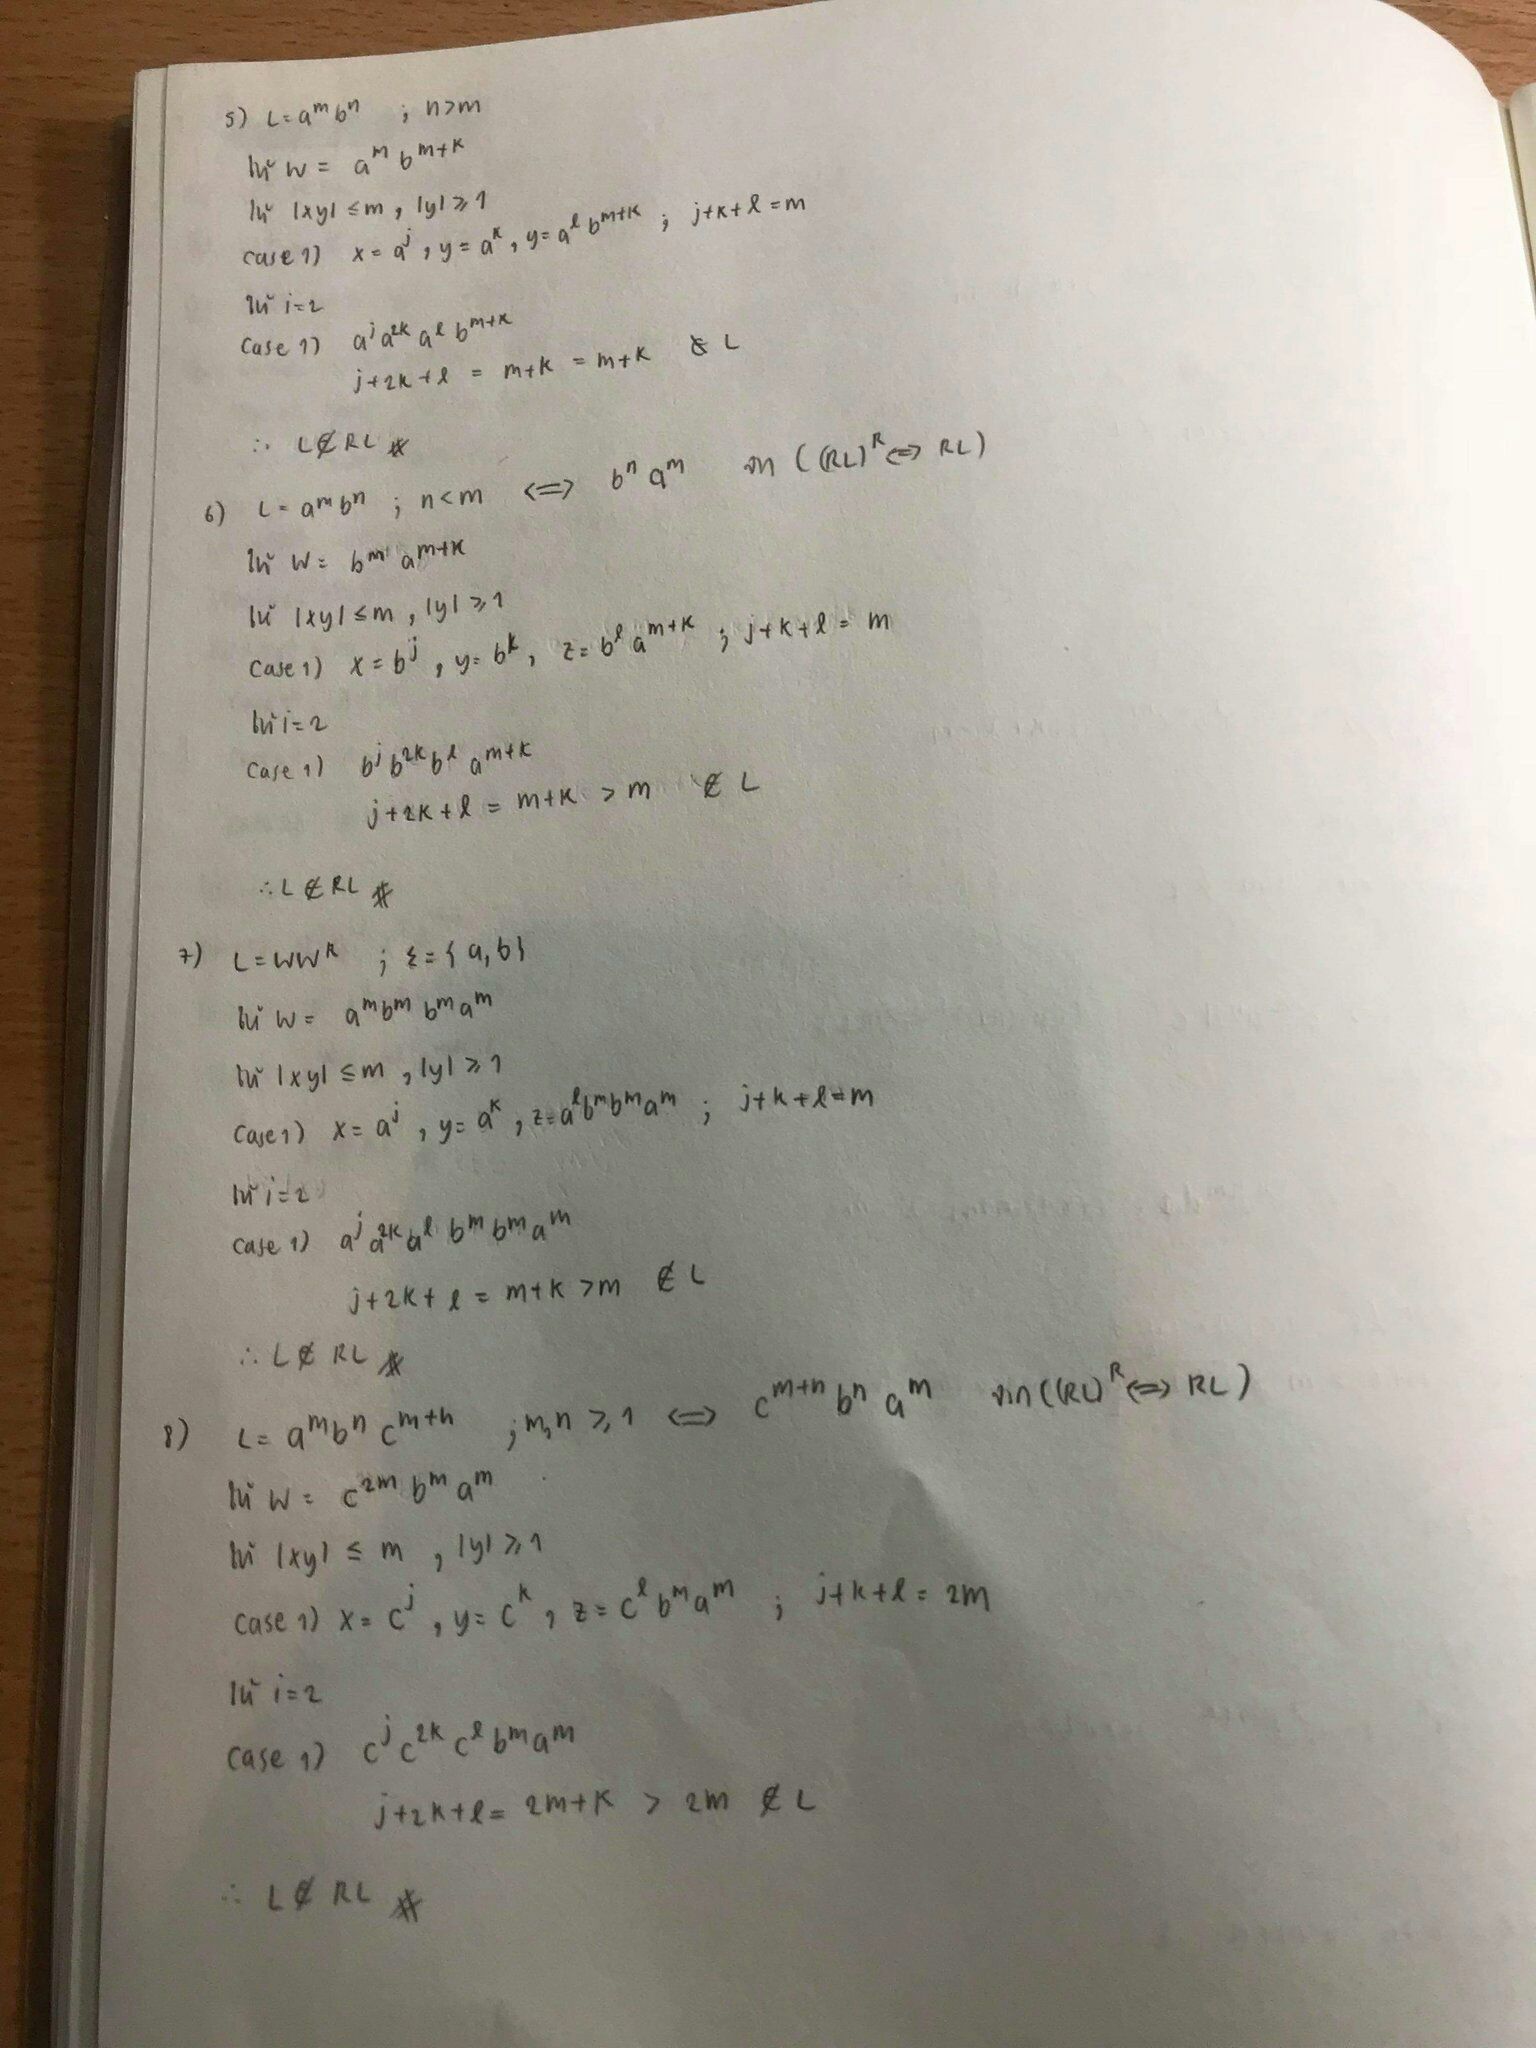 5) L = a^m b^n ; n>m
ให้ w = a^m b^{m+k}
ให้ |xy| ≤ m , |y| ≥ 1
case 1) x = a^j , y = a^k , y = a^l b^{m+k} ; j+k+l = m
ให้ i=2
case 1) a^j a^{2k} a^l b^{m+k}
j+2k+l = m+k = m+k ∉ L
∴ L ∉ RL #
6) L = a^m b^n ; n<m ⟺ b^n a^m จาก ((RL)^R ⟺ RL)
ให้ w = b^m a^{m+k}
ให้ |xy| ≤ m , |y| ≥ 1
case 1) x = b^j , y = b^k , z = b^l a^{m+k} ; j+k+l = m
ให้ i=2
case 1) b^j b^{2k} b^l a^{m+k}
j+2k+l = m+k > m ∉ L
∴ L ∉ RL #
7) L = ww^R ; Σ = {a,b}
ให้ w = a^m b^m b^m a^m
ให้ |xy| ≤ m , |y| ≥ 1
case 1) x = a^j , y = a^k , z = a^l b^m b^m a^m ; j+k+l = m
ให้ i=2
case 1) a^j a^{2k} a^l b^m b^m a^m
j+2k+l = m+k > m ∉ L
∴ L ∉ RL #
8) L = a^m b^n c^{m+n} ; m,n ≥ 1 ⟺ c^{m+n} b^n a^m จาก ((RL)^R ⟺ RL)
ให้ w = c^{2m} b^m a^m
ให้ |xy| ≤ m , |y| ≥ 1
case 1) x = c^j , y = c^k , z = c^l b^m a^m ; j+k+l = 2m
ให้ i=2
case 1) c^j c^{2k} c^l b^m a^m
j+2k+l = 2m+k > 2m ∉ L
∴ L ∉ RL #